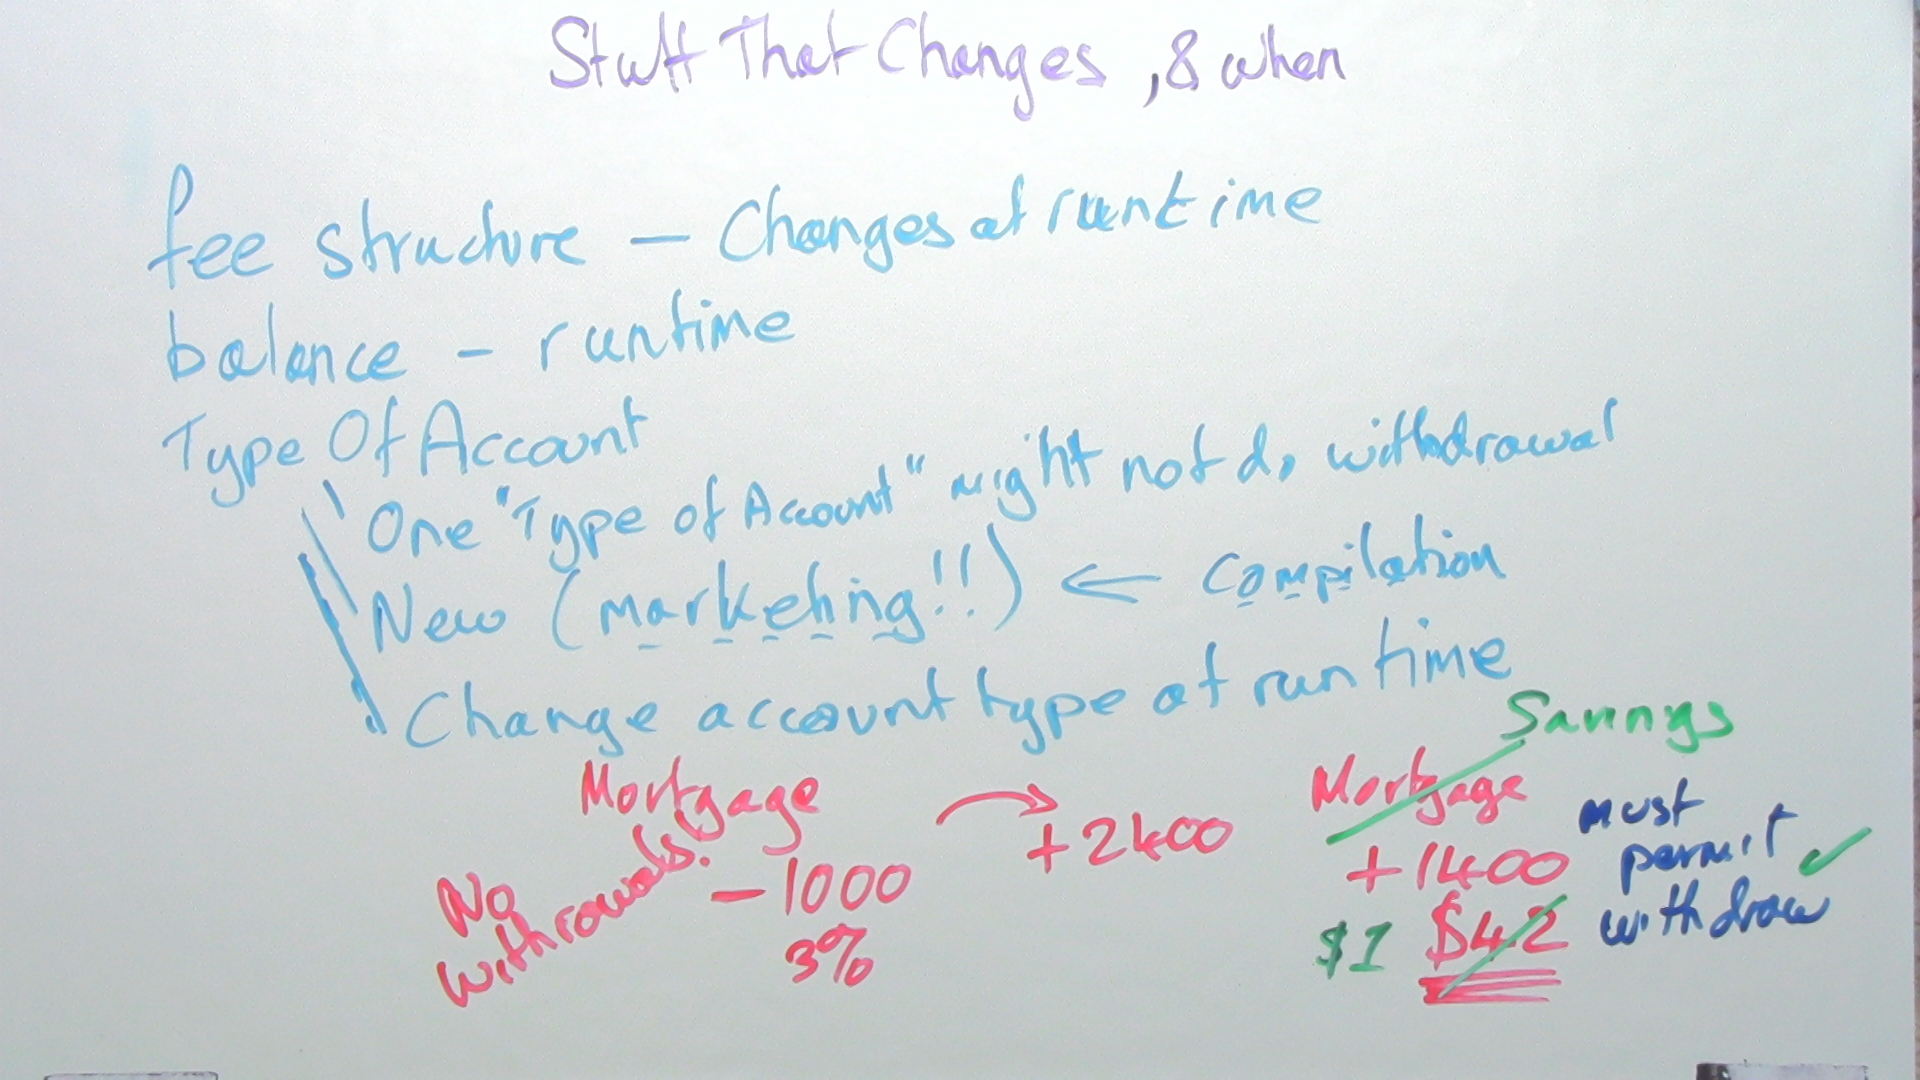 Stuff That Changes, & when
fee structure — Changes at runtime
balance - runtime
Type Of Account
One "Type of Account" might not do withdrawal
New (marketing!!) ← Compilation
Change account type at runtime
Savings
Mortgage
No withrowals!
-1000
3%
+2400
Mortgage
+1400
$1 $42
must
permit ✓
withdraw